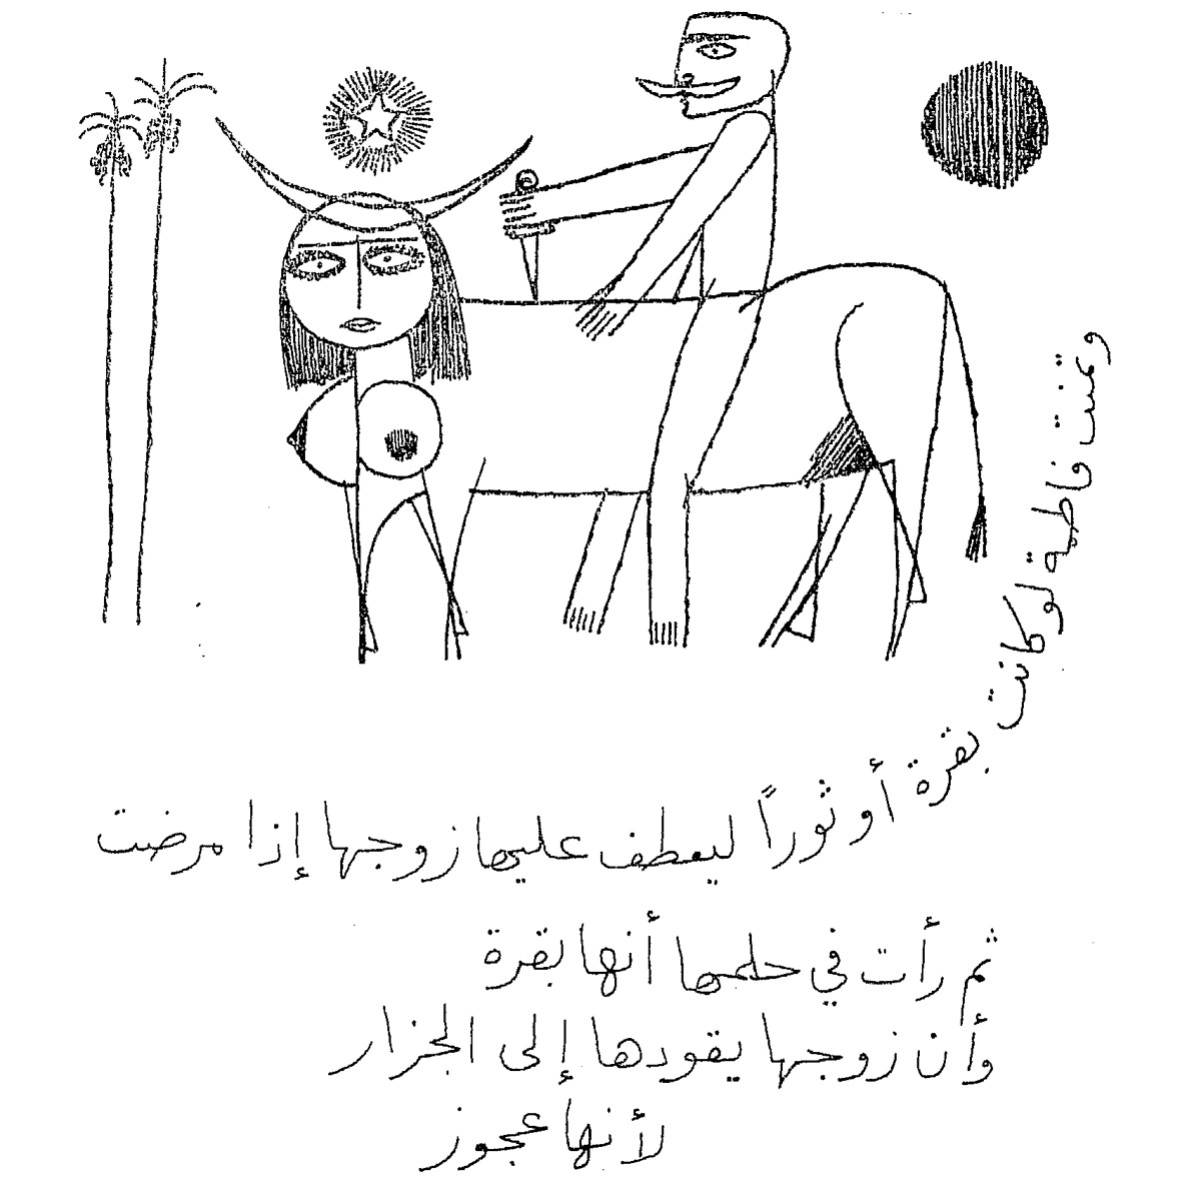 وتمنت فاطمة لو كانت بقرة أو ثوراً ليعطف عليها زوجها إذا مرضت
ثم رأت في حلمها أنها بقرة
وأن زوجها يقودها إلى الجزار
لأنها عجوز